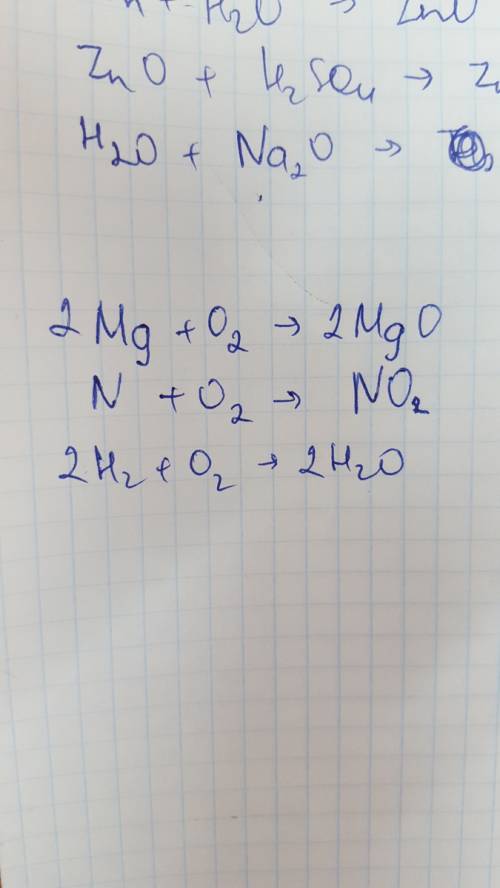 + H₂O → ZnO
ZnO + H₂SO₄ → Z
H₂O + Na₂O →
2Mg + O₂ → 2MgO
N + O₂ → NO₂
2H₂ + O₂ → 2H₂O